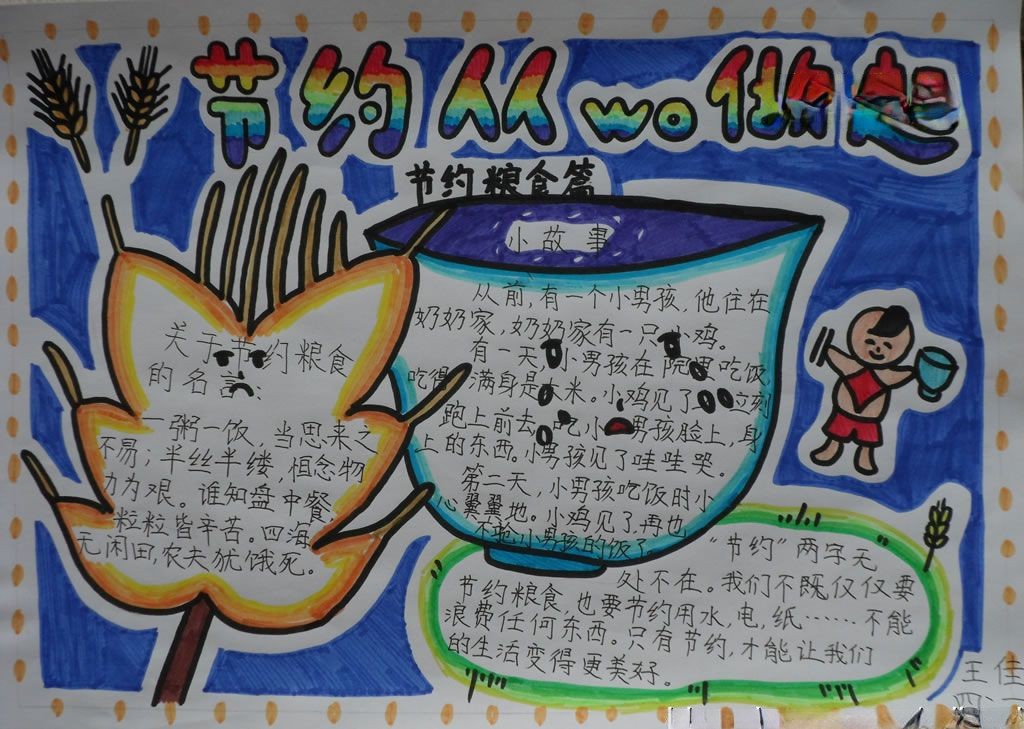 节约从wo做起
节约粮食篇
小故事
从前,有一个小男孩,他住在
奶奶家,奶奶家有一只小鸡。
有一天,小男孩在院里吃饭,
吃得满身是大米。小鸡见了立刻
跑上前去,吃小男孩脸上,身
上的东西。小男孩见了哇哇哭。
第二天,小男孩吃饭时小
心翼翼地。小鸡见了,再也
不抢小男孩的饭了。
关于节约粮食
的名言:
一粥一饭,当思来之
不易;半丝半缕,恒念物
力为艰。谁知盘中餐,
粒粒皆辛苦。四海
无闲田,农夫犹饿死。
“节约”两字无
处不在。我们不既仅仅要
节约粮食,也要节约用水,电,纸……不能
浪费任何东西。只有节约,才能让我们
的生活变得更美好。
王佳